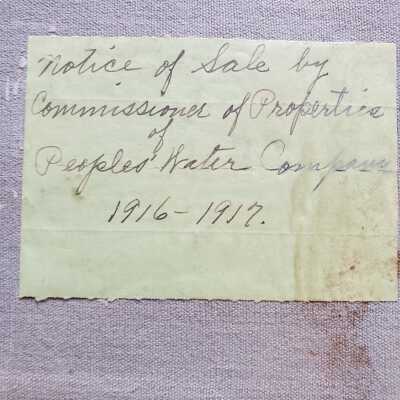 Notice of Sale by
Commissioner of Properties
of
Peoples' Water Company
1916-1917.